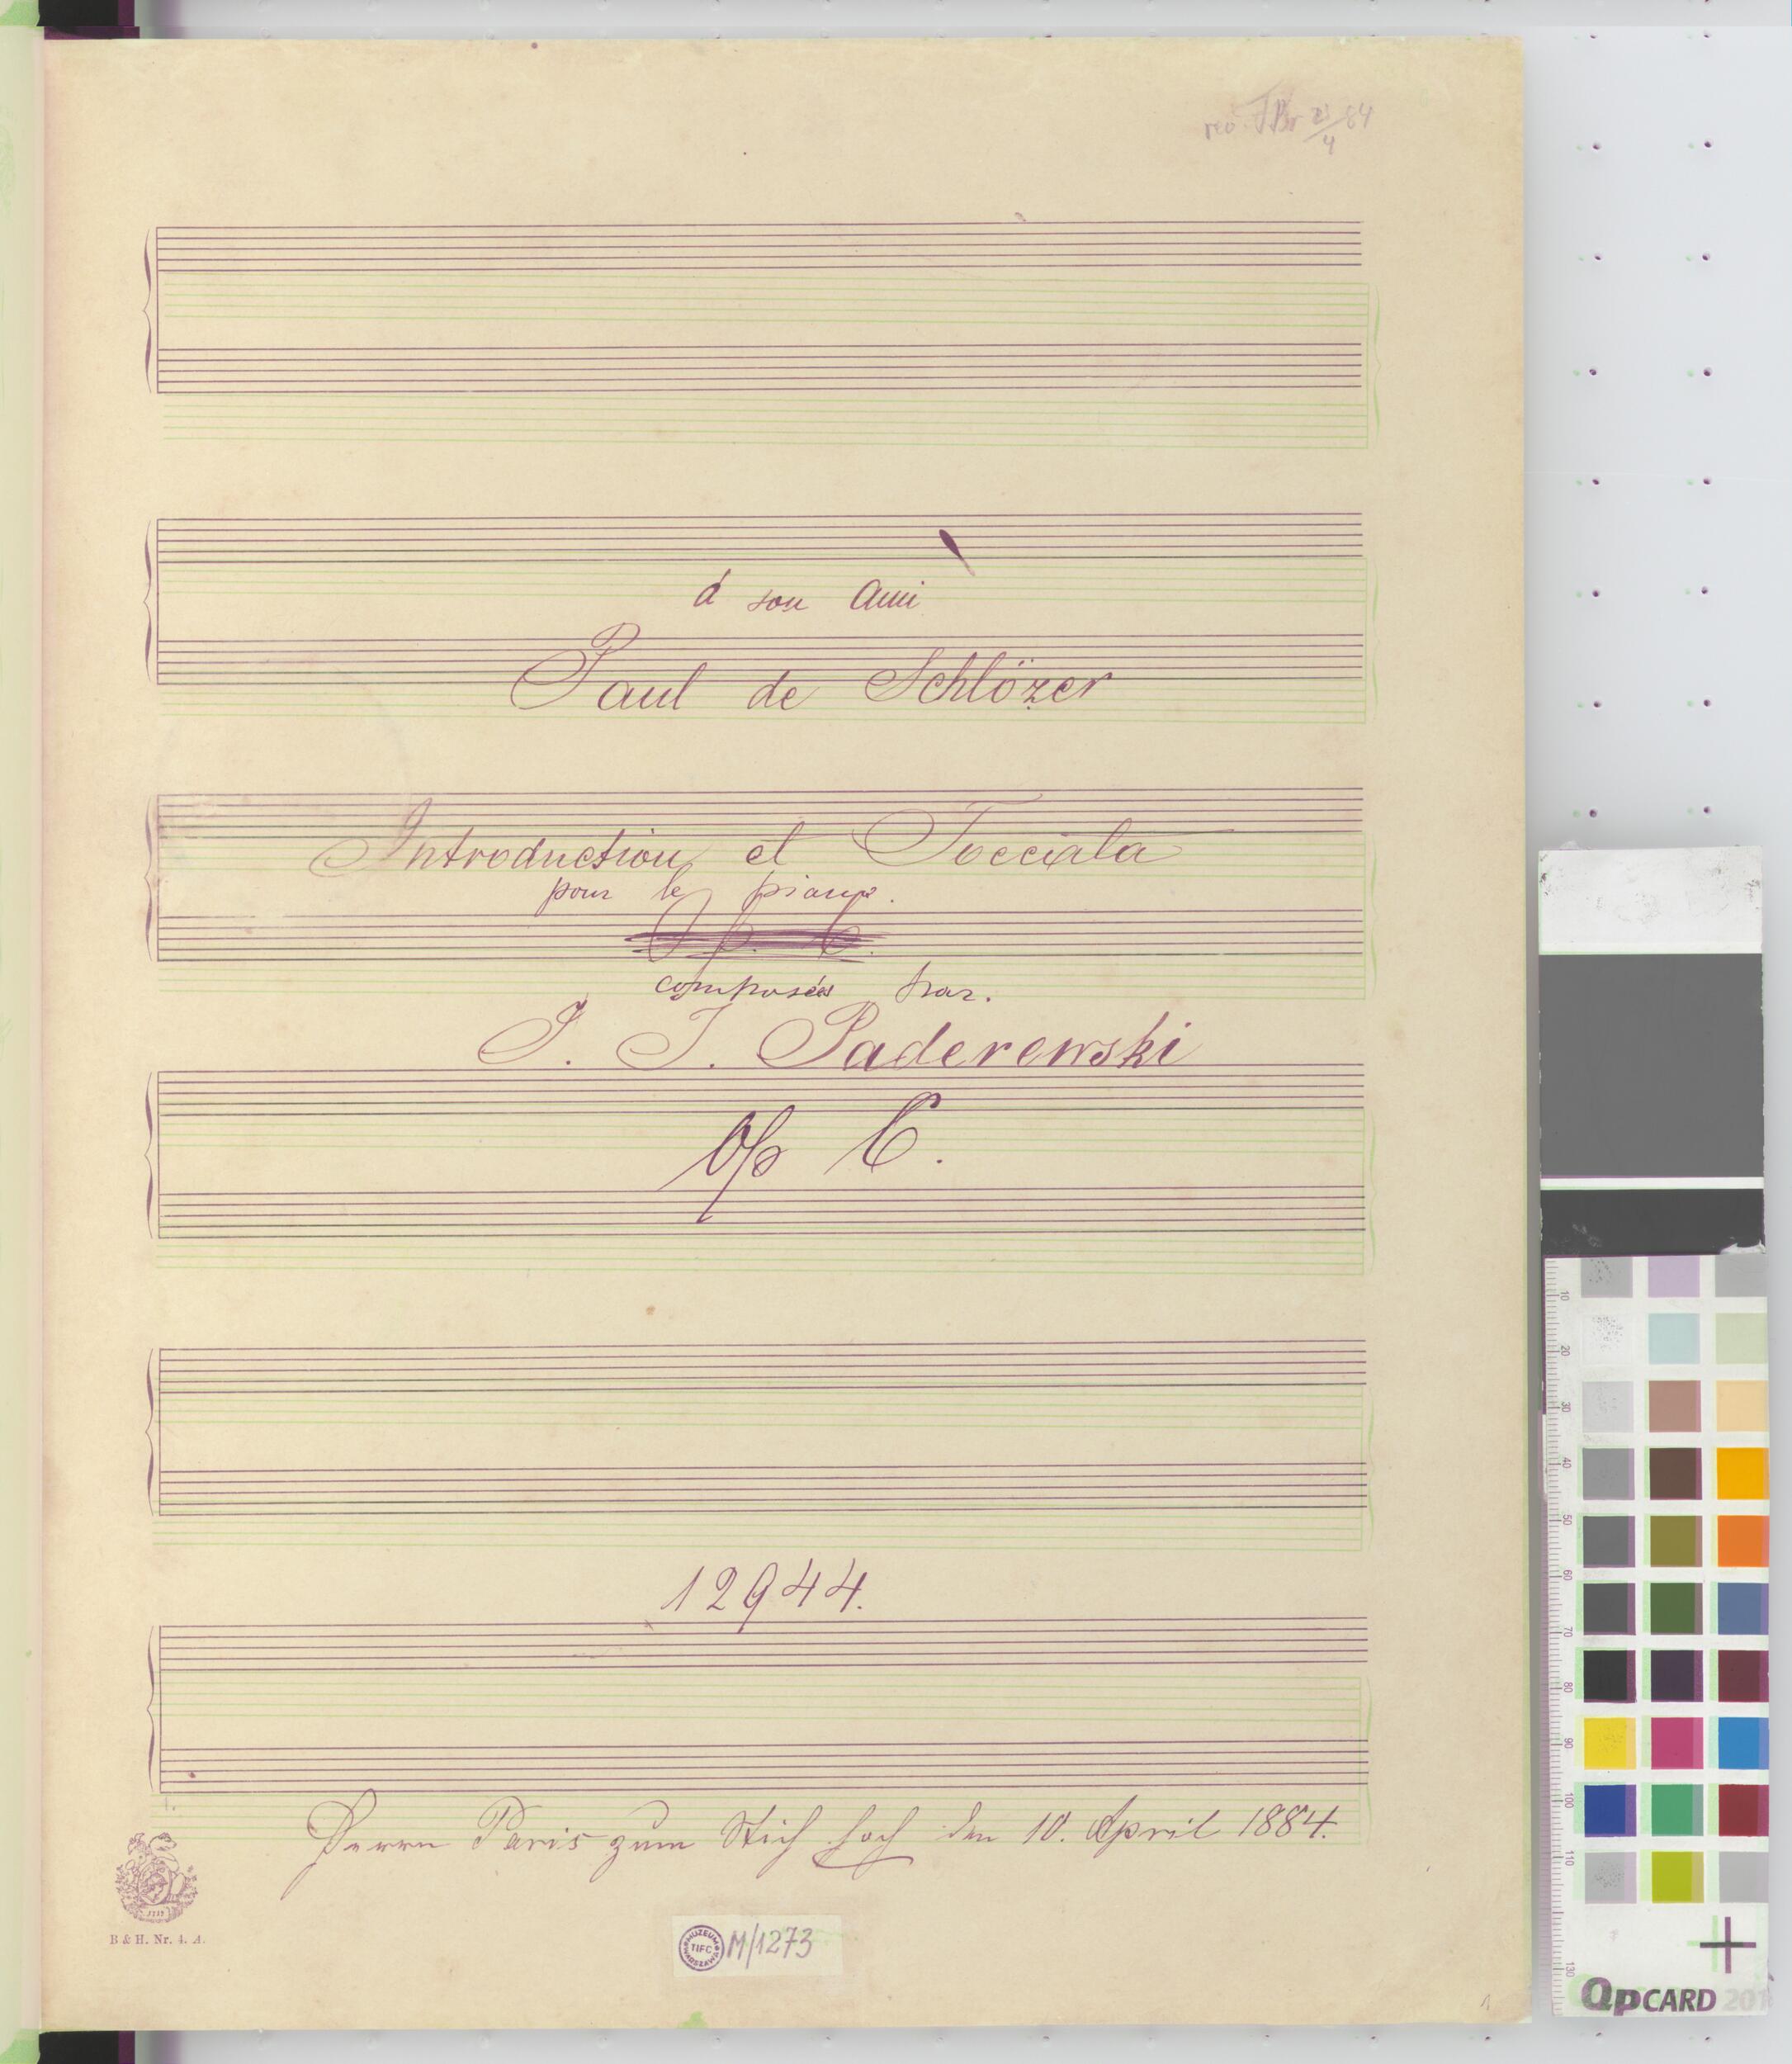 rev. 23/4 84
á son Ami
Paul de Schlözer
Introduction et Tocciata
pour le piano.
Op. 6.
composées par.
I. J. Paderewski
Op 6.
12944.
Herrn Paris zum Stich hoch den 10. April 1884.
1719
B & H. Nr. 4. A.
MUZEUM TIFC WARSZAWA M/1273
1
10
20
30
40
50
60
70
80
90
100
110
130
QPCARD 201